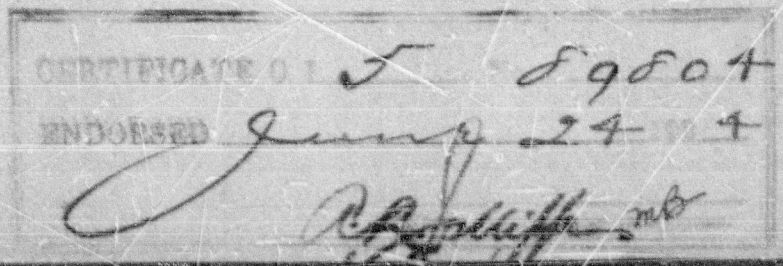 CERTIFICATE 5 89804
ENDORSED June 24 4
MB